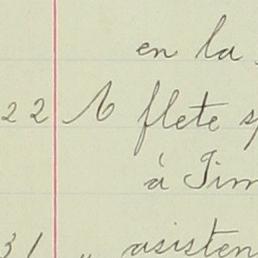 en la
22 A flete
à Tim
31 " asisten